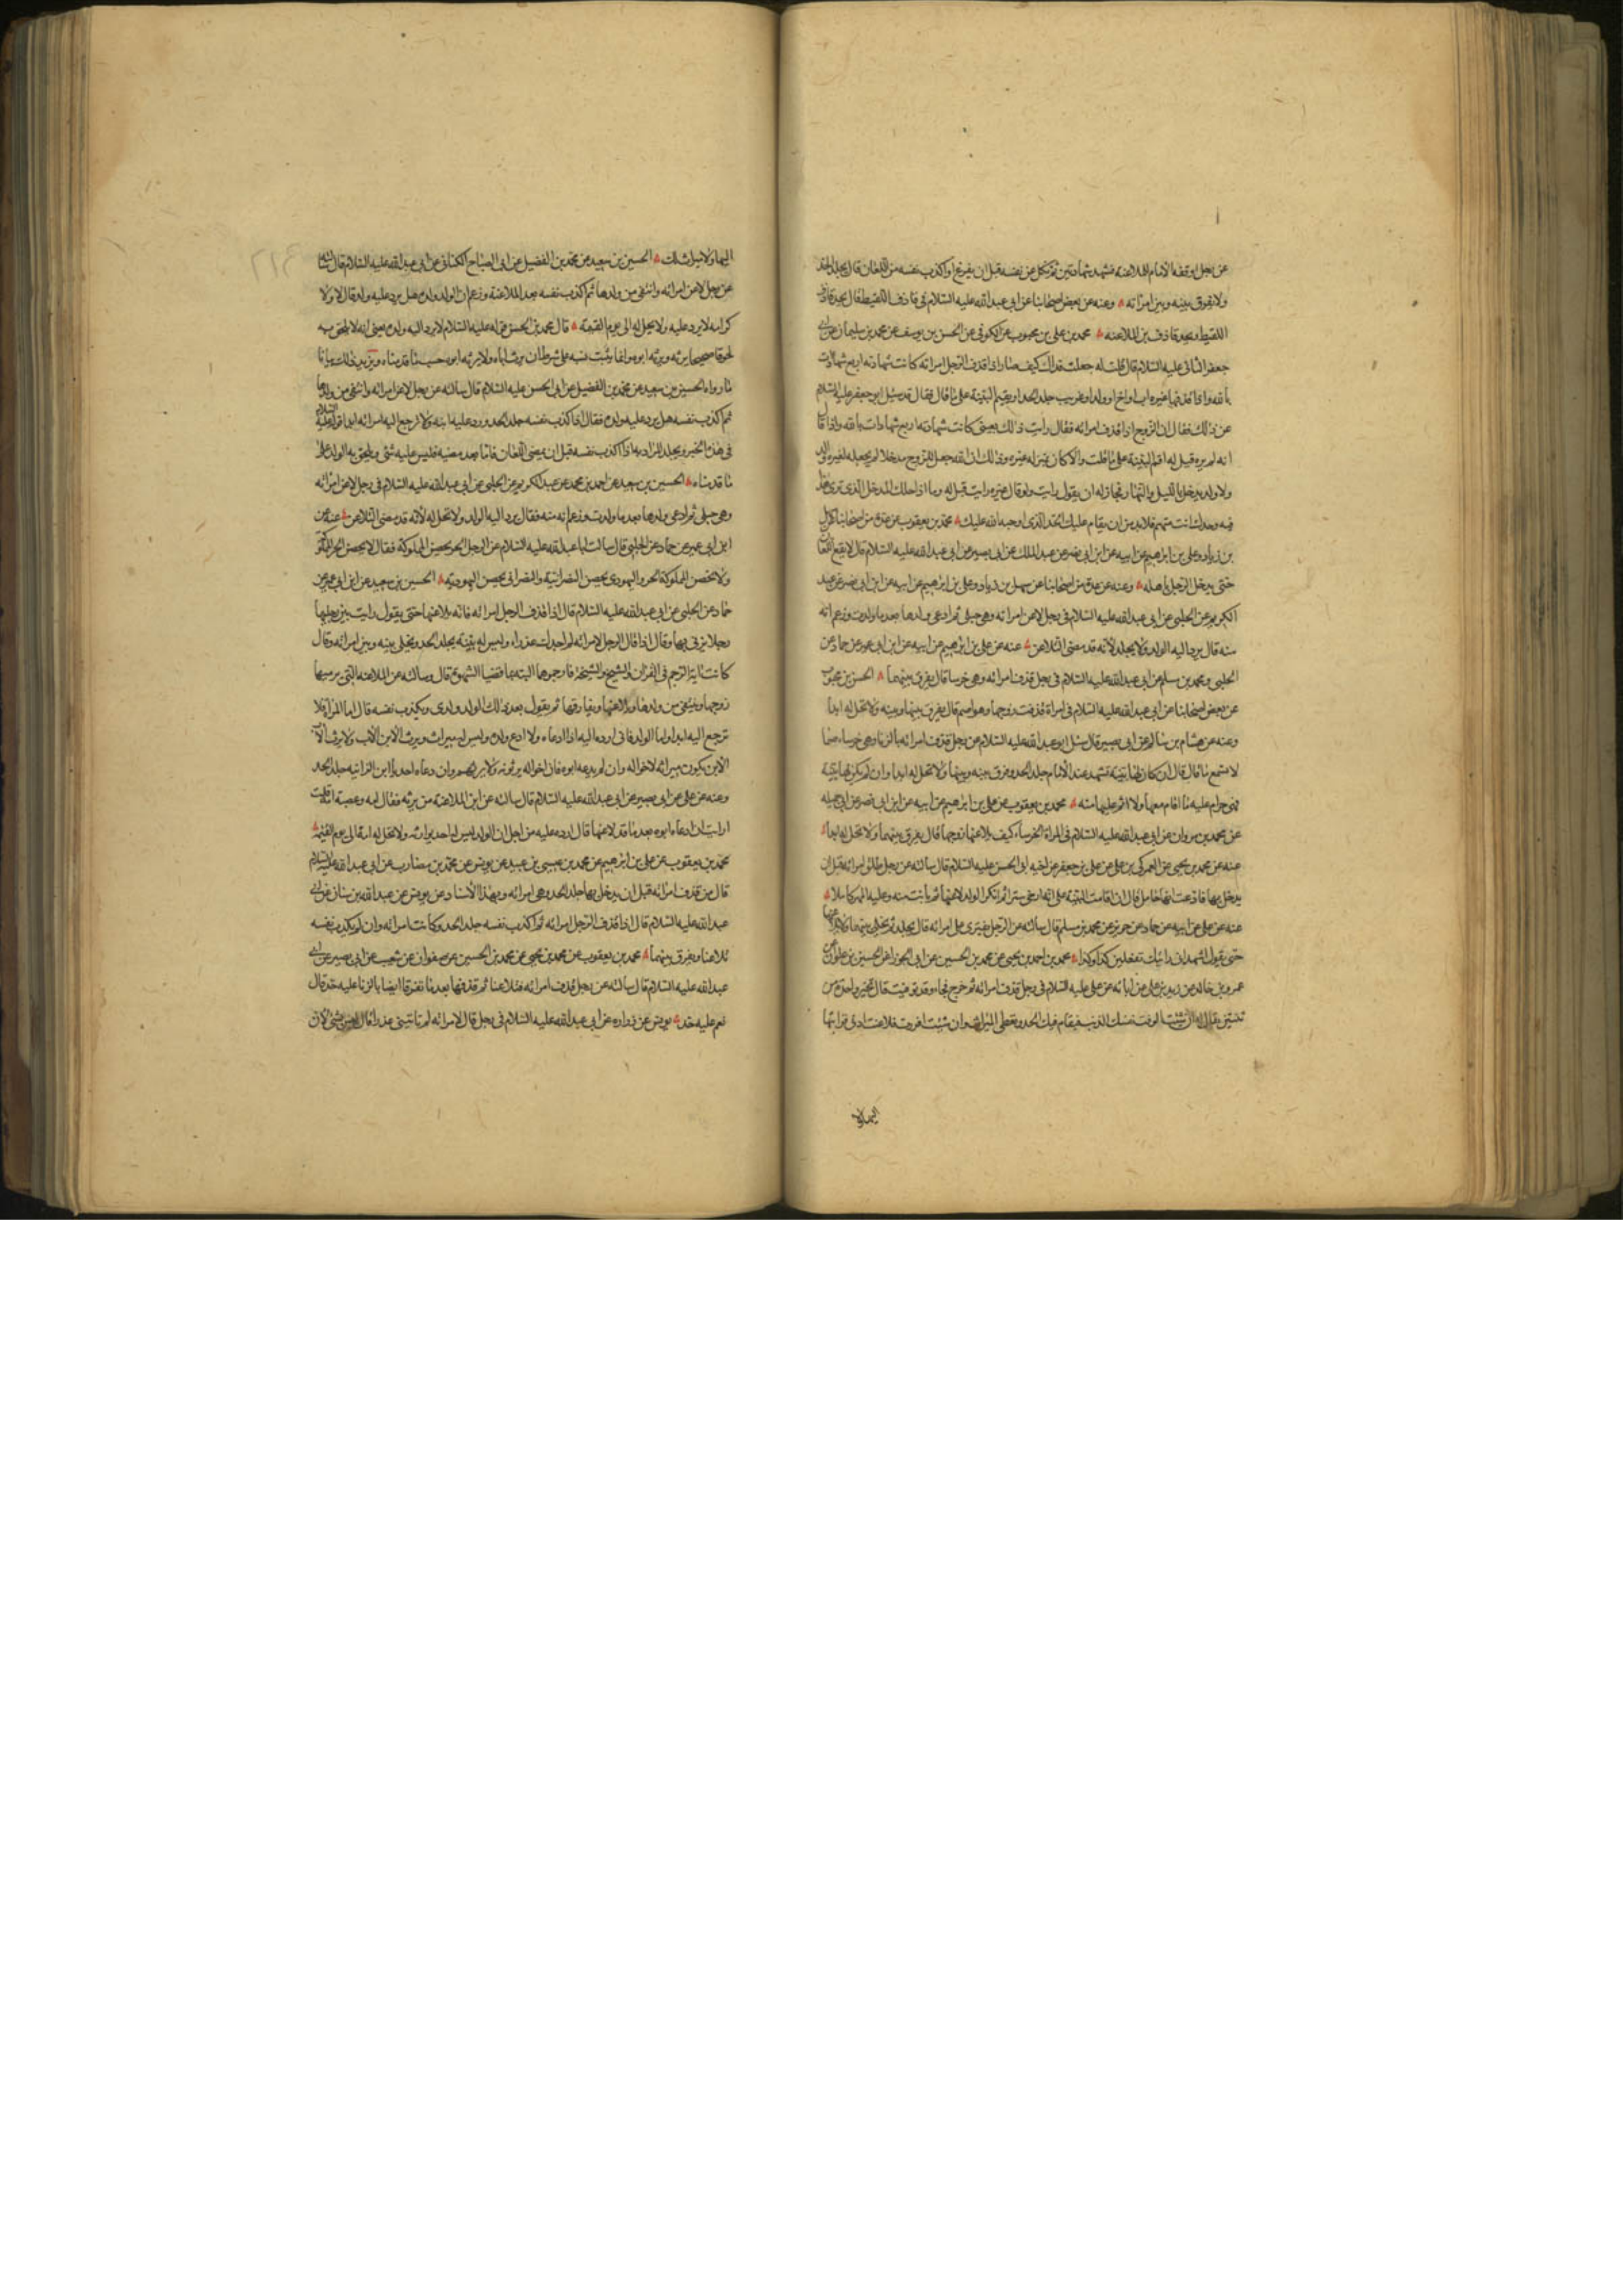 عن رجل اوقفه الامام للملاعنة فشهد شهادتين ثم نكل عن نفسه قبل ان يفرغ او اكذب نفسه من اللعان قال يجلد الحد
ولا يفرق بينه وبين امراته وعنه عن بعض اصحابنا عن ابي عبد الله عليه السلام في قاذف اللقيط قال يحد قاذف
اللقيط ويحد قاذف بن الملاعنه محمد بن علي بن محبوب عن الكوفي عن الحسن بن يوسف عن محمد بن سليمان عن ابي
جعفر الثاني عليه السلام قال قلت له جعلت فداك كيف صار اذا قذف الرجل امراته كانت شهادته اربع شهادات
بالله واذا قذفها غيره اب او اخ او ولد او غريب جلد الحد او يقيم البينة على ما قال فقال قد سئل ابو جعفر عليه السلام
عن ذلك فقال ان الزوج اذا قذف امرائه فقال رايت ذلك بعيني كانت شهادته اربع شهادات بالله واذا قال
انه لم يره قيل له اقم البينة على ما قلت والا كان بمنزله غيره وذلك ان الله جعل للزوج مدخلا لم يجعله لغيره والد
ولا ولد يدخل بالليل والنهار فجاز له ان يقول رايت ولو قال غيره رايت قيل له وما ادخلك المدخل الذي ترى هذا
فيه وحدك انت متهم فلابد من ان يقام عليك الحد الذي اوجبه الله عليك محمد بن يعقوب عن عدة من اصحابنا عن سهل
بن زياد وعلي بن ابرهيم عن ابيه عن ابن ابي نصر عن عبد الملك عن ابي بصير عن ابي عبد الله عليه السلام قال لا يقع اللعان
حتى يدخل الرجل باهله وعنه عن عدة من اصحابنا عن سهل بن زياد وعلي بن ابرهيم عن ابيه عن ابن ابي نصر عن عبد
الكريم عن الحلبي عن ابي عبد الله عليه السلام في رجل لاعن امرائه وهي حبلى ثم ادعى ولدها بعد ما ولدت وزعم انه
منه قال يرد اليه الولد ولا يجلد لانه قد مضى التلاعن عنه عن علي بن ابرهيم عن ابيه عن ابن ابي عمير عن حماد عن
الحلبي ومحمد بن مسلم عن ابي عبد الله عليه السلام في رجل قذف امرائه وهي خرسا قال يفرق بينهما الحسن بن محبوب
عن بعض اصحابنا عن ابي عبد الله عليه السلام في امراة قذفت زوجها وهو اصم قال يفرق بينها وبينه ولا تحل له ابدا
وعنه عن هشام بن سالم عن ابي بصير قال سئل ابو عبد الله عليه السلام عن رجل قذف امرائه بالزنا وهي خرساء صما
لا تسمع ما قال قال ان كان لها بينة تشهد عند الامام جلد الحد وفرق بينه وبينها ولا تحل له ابدا وان لم يكن لها بينه
فهي حرام عليه ما اقام معها ولا اثم عليها منه محمد بن يعقوب عن علي بن ابرهيم عن ابيه عن ابن ابي نصر عن ابي جميله
عن محمد بن مروان عن ابي عبد الله عليه السلام في المراة الخرساء كيف يلاعنها زوجها قال يفرق بينهما ولا تحل له ابدا
عنه عن محمد بن يحيى عن العمركي بن علي عن علي بن جعفر عن اخيه ابي الحسن عليه السلام قال سالته عن رجل طلق امرائه قبل ان
يدخل بها فادعت انها حامل قال ان اقامت البينة على انه ارخى سترا ثم انكر الولد لاعنها ثم بانت منه وعليه المهر كاملا
عنه عن علي عن ابيه عن حماد عن حريز عن محمد بن مسلم قال سالته عن الرجل يفترى على امرائه قال يجلد ثم يخلى بينهما ولا يلاعنها
حتى يقول اشهد اني رايتك تفعلين كذا وكذا محمد بن احمد بن يحيى عن محمد بن الحسين عن ابي الجوزا عن الحسين بن علوان عن
عمرو بن خالد عن زيد بن علي عن ابائه عن علي عليه السلام في رجل قذف امرائه ثم خرج فجاء وقد توفيت قال تخير واحدة من
ثنتين يقال له ان شئت الزمت نفسك الذنب فيقام فيك الحد وتعطى الميراث وان شئت اقررت فلاعنت ادنى قرابتها
اليها ولا
اليها ولا ميراث لك الحسين بن سعيد عن محمد بن الفضيل عن ابي الصباح الكناني عن ابي عبد الله عليه السلام قال سالته
عن رجل لاعن امرائه وانتفى من ولدها ثم اكذب نفسه بعد الملاعنة وزعم ان الولد ولده هل يرد عليه ولده قال لا ولا
كرامه لا يرد عليه ولا يحل له الى يوم القيمة قال محمد بن الحسن قوله عليه السلام لا يرد اليه ولده يعني انه لا يلحق به
لحوقا صحيحا يرثه ويرثه ابوه وانما يثبت نسبه على شرط ان يرث اباه ولا يرثه ابوه حسب ما قدمناه ويزيد ذلك بيانا
ما رواه الحسين بن سعيد عن محمد بن الفضيل عن ابي الحسن عليه السلام قال سالته عن رجل لاعن امرائه وانتفى من ولدها
ثم اكذب نفسه هل يرد عليه ولده فقال اذا اكذب نفسه جلد الحد ورد عليه ابنه ولا ترجع اليه امرائه ابدا قوله عليه السلام
في هذا الخبر ويجلد المراد به اذا اكذب نفسه قبل ان يمضي اللعان فاما بعد مضيه فليس عليه شئ ويلحق به الولد على
ما قدمناه الحسين بن سعيد عن احمد بن محمد عن عبد الكريم عن الحلبي عن ابي عبد الله عليه السلام في رجل لاعن امرائه
وهي حبلى ثم ادعى ولدها بعد ما ولدت وزعم انه منه فقال يرد اليه الولد ولا تحل له لانه قد مضى التلاعن عنه عن
ابن ابي عمير عن حماد عن الحلبي قال سالت ابا عبد الله عليه السلام عن الرجل الحر يحصن المملوكة فقال لا يحصن الحر المملوكة
ولا تحصن المملوكة الحر واليهودي يحصن النصرانية والنصراني يحصن اليهودية الحسين بن سعيد عن ابن ابي عمير عن
حماد عن الحلبي عن ابي عبد الله عليه السلام قال اذا قذف الرجل امرائه فانه يلاعنها حتى يقول رايت بين رجليها
رجلا يزني بها وقال اذا قال الرجل لامرائه لم اجدك عذراء وليس له بينة يجلد الحد ويخلى بينه وبين امرائه وقال
كانت اية الرجم في القران والشيخ والشيخة فارجموها البته بما قضيا الشهوة قال وسالته عن الملاعنه التي يرميها
زوجها وينتفي من ولدها ويلاعنها ويفارقها ثم يقول بعد ذلك الولد ولدي ويكذب نفسه قال اما المراة فلا
ترجع اليه ابدا واما الولد فاني ارده اليه اذا ادعاه ولا ادع ولده وليس له ميراث ويرث الابن الاب ولا يرث الاب
الابن يكون ميراثه لاخواله وان لم يدعه ابوه فان اخواله يرثونه ولا يرثهم وان دعاه احد يا ابن الزانيه جلد الحد
وعنه عن علي عن ابي بصير عن ابي عبد الله عليه السلام قال سالته عن ابن الملاعنة من يرثه فقال امه وعصبة امه قلت
ارايت ان ادعاه ابوه بعد ما قد لاعنها قال ارده عليه من اجل ان الولد ليس له احد يوارثه ولا تحل له امه الى يوم القيمة
محمد بن يعقوب عن علي بن ابرهيم عن محمد بن عيسى بن عبيد عن يونس عن محمد بن مضارب عن ابي عبد الله عليه السلام
قال من قذف امرائه قبل ان يدخل بها جلد الحد وهي امرائه وبهذا الاسناد عن يونس عن عبد الله بن سنان عن ابي
عبد الله عليه السلام قال اذا قذف الرجل امرائه ثم اكذب نفسه جلد الحد وكانت امرائه وان لم يكذب نفسه
تلاعنا ويفرق بينهما محمد بن يعقوب عن محمد بن يحيى عن محمد بن الحسين عن صفوان عن شعيب عن ابي بصير عن ابي
عبد الله عليه السلام قال سالته عن رجل قذف امرائه فتلاعنا ثم قذفها بعد ما تفرقا ايضا بالزنا عليه حد قال
نعم عليه حد يونس عن زراره عن ابي عبد الله عليه السلام في رجل قال لامرائه لم تاتيني عذرا قال ليس بشئ لان